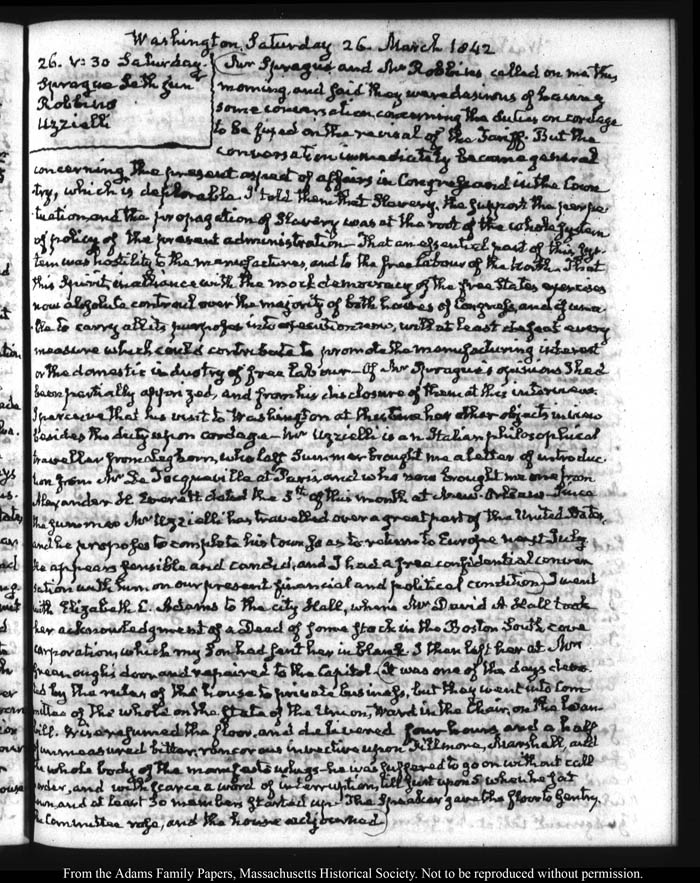 Washington. Saturday 26. March 1842
26. V: 30 Saturday.
Sprague Seth Jun
Robbins
Uzzielli
Mr Sprague and Mr Robbins called on me this
morning, and said they were desirous of having
some conversation concerning the duties on cordage
to be fixed on the revisal of the Tariff. But the
conversation immediately became general
concerning the present aspect of affairs in Congress and in the Coun
try, which is deplorable. I told them that Slavery, the support the perpe
tuation, and the propagation of Slavery was at the root of the whole system
of policy of the present administration. That an essential part of this Sys
tem was hostility to the manufactures, and to the free labour of the North. That
this Spirit, in alliance with the mock democracy of the free States exercises
now absolute controul over the majority of both houses of Congress, and if una
ble to carry all its purposes into execution now, will at least defeat every
measure which could contribute to promote the manufacturing interest
or the domestic industry of free labour— Of Mr Sprague's opinions I had
been partially apprized, and from his disclosure of them at this interview.
I perceive that his visit to Washington at this time has other objects in view
besides the duty upon cordage— Mr Uzzielli is an Italian philosophical
traveller from Leghorn, who last Summer brought me a letter of introduc
tion from Mr De Tocqueville at Paris, and who now brought me one from
Alexander H. Everett dated the 5th of this month at New-Orleans. Since
the summer Mr Uzzielli has travelled over a great part of the United States,
and he proposes to complete his tour so as to return to Europe next July
he appears sensible and candid, and I had a free confidential conver
sation with him on our present financial and political condition. I went
with Elizabeth C. Adams to the city Hall, where Mr David A Hall took
her acknowledgment of a Deed of some stock in the Boston South cove
corporation, which my Son had sent her in blank. I then left her at Mrs
Greenough's door and repaired to the Capitol. It was one of the days devo
ted by the rules of the house to private business, but they went into Com
mittee of the whole on the State of the Union, Ward in the Chair, on the Loan
bill. Wise resumed the floor, and delivered four hours and a half
of unmeasured bitter, rancorous invective upon Fillmore, Marshall, and
the whole body of the manifesto whigs— he was suffered to go on without call
to order, and with scarce a word of interruption, till just upon 5 when he sat
down, and at least 30 members started up. The Speaker gave the floor to Gentry.
the Committee rose, and the house adjourned
From the Adams Family Papers, Massachusetts Historical Society. Not to be reproduced without permission.